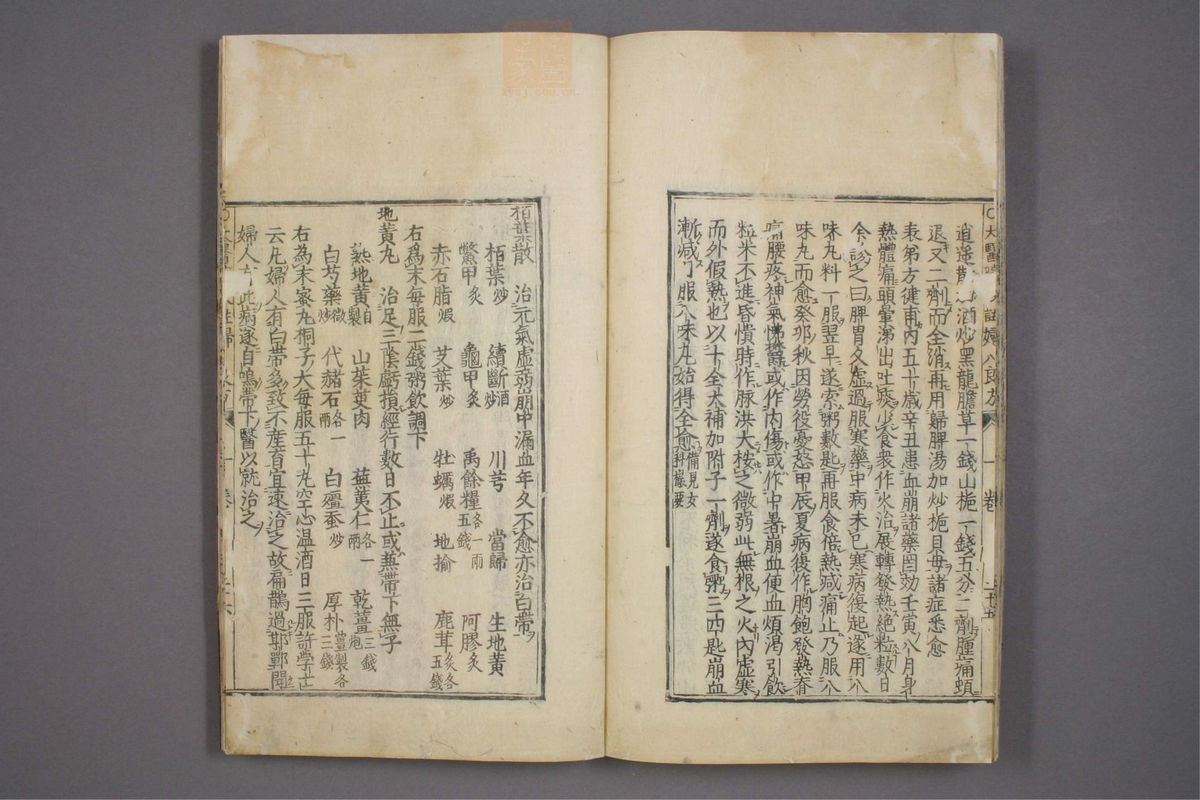 逍遥散 酒炒黑龍膽草一錢山梔一錢五分二劑腫痛頓
退又二劑而全消再用歸脾湯加炒梔貝母諸症悉愈
表弟方健甫内五十歲辛丑患血崩諸藥罔効壬寅八月身
熱體痛頭暈涕出吐痰少食衆作火治展轉發熱絶粒數日
余診之曰脾胃久虚過服寒藥中病未已寒病復起遂用八
味丸料一服翌早遂索粥數匙再服食倍熱减痛止乃服八
味丸而愈癸卯秋因勞役憂怒甲辰夏病復作胸飽發熱脊
痛腰疼神氣怫欝或作内傷或作中暑崩血便血煩渴引飲
粒米不進昏憒時作脉洪大按之微弱此無根之火内虚寒
而外假熱也以十全大補加附子一劑遂食粥三四匙崩血
漸减了服八味丸始得全愈備見女科撮要
二十五
栢葉散 治元氣虚弱崩中漏血年久不愈亦治白帶
栢葉炒 續斷酒炒 川芎 當歸 生地黄
鱉甲炙 龜甲炙 禹餘糧各一兩五錢 阿膠炙
赤石脂煆 艾葉炒 牡蠣煆 地揄 鹿茸炙各五錢
右爲末每服二錢粥飲調下
地黄丸 治足三陰虧損經行數日不止或兼帶下無子
熟地黄自製 山茱萸肉 蕪荑仁各一兩 乾薑炮三錢
白芍藥微炒 代赭石各一兩 白殭蚕炒 厚朴薑製各三錢
右為末蜜丸桐子大每服五十丸空心温酒日三服許學士
云凡婦人有白帶多致不産育宜速治之故扁鵲過邯鄲聞
婦人 此病遂自鳴帶下醫以就治之